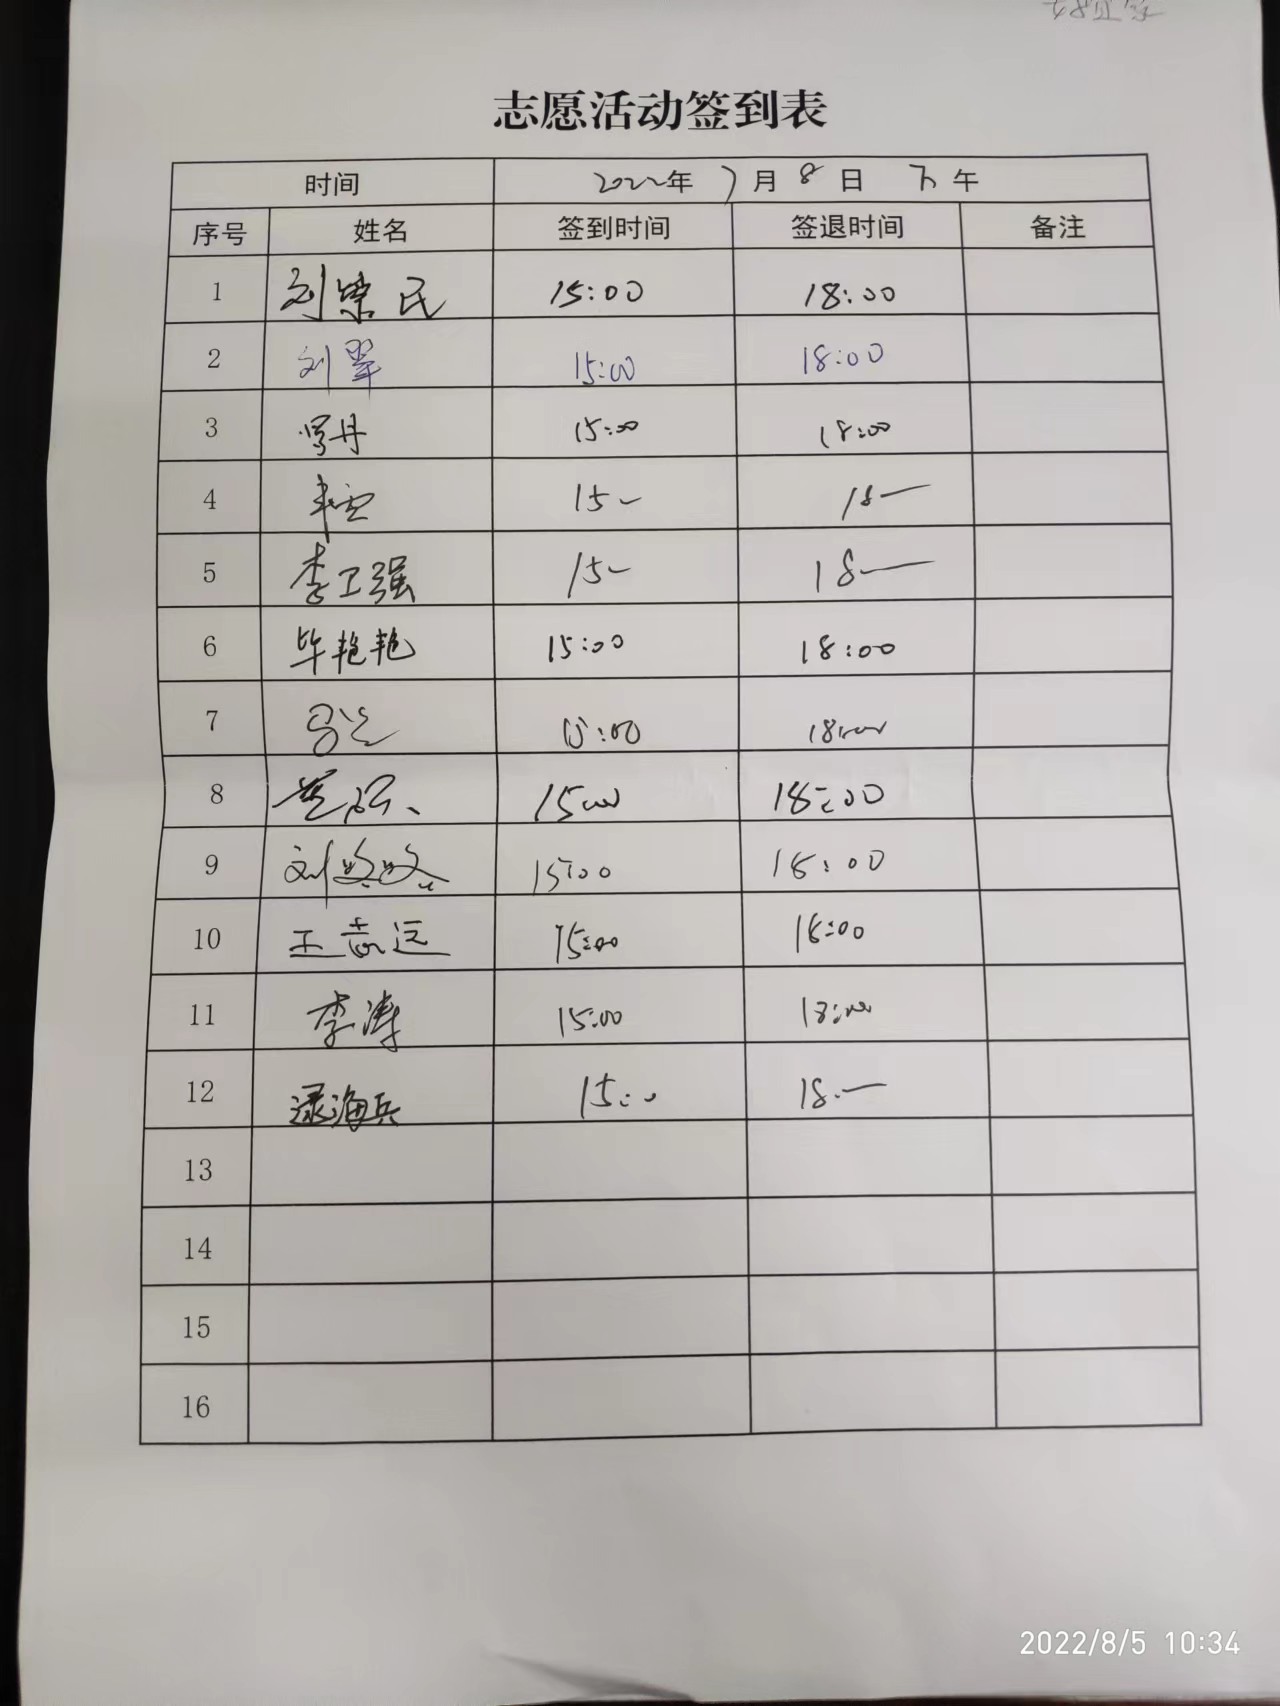 志愿活动签到表
时间 2022年 7月 8日 下午
序号 姓名 签到时间 签退时间 备注
1 刘荣民 15:00 18:00
2 刘翠 15:00 18:00
3 罗丹 15:00 18:00
4 15- 18-
5 李卫强 15- 18-
6 毕艳艳 15:00 18:00
7 15:00 18:00
8 15:00 18:00
9 刘姣姣 15:00 18:00
10 王志远 15:00 18:00
11 李涛 15:00 18:00
12 逯海兵 15:00 18:-
13
14
15
16
2022/8/5 10:34